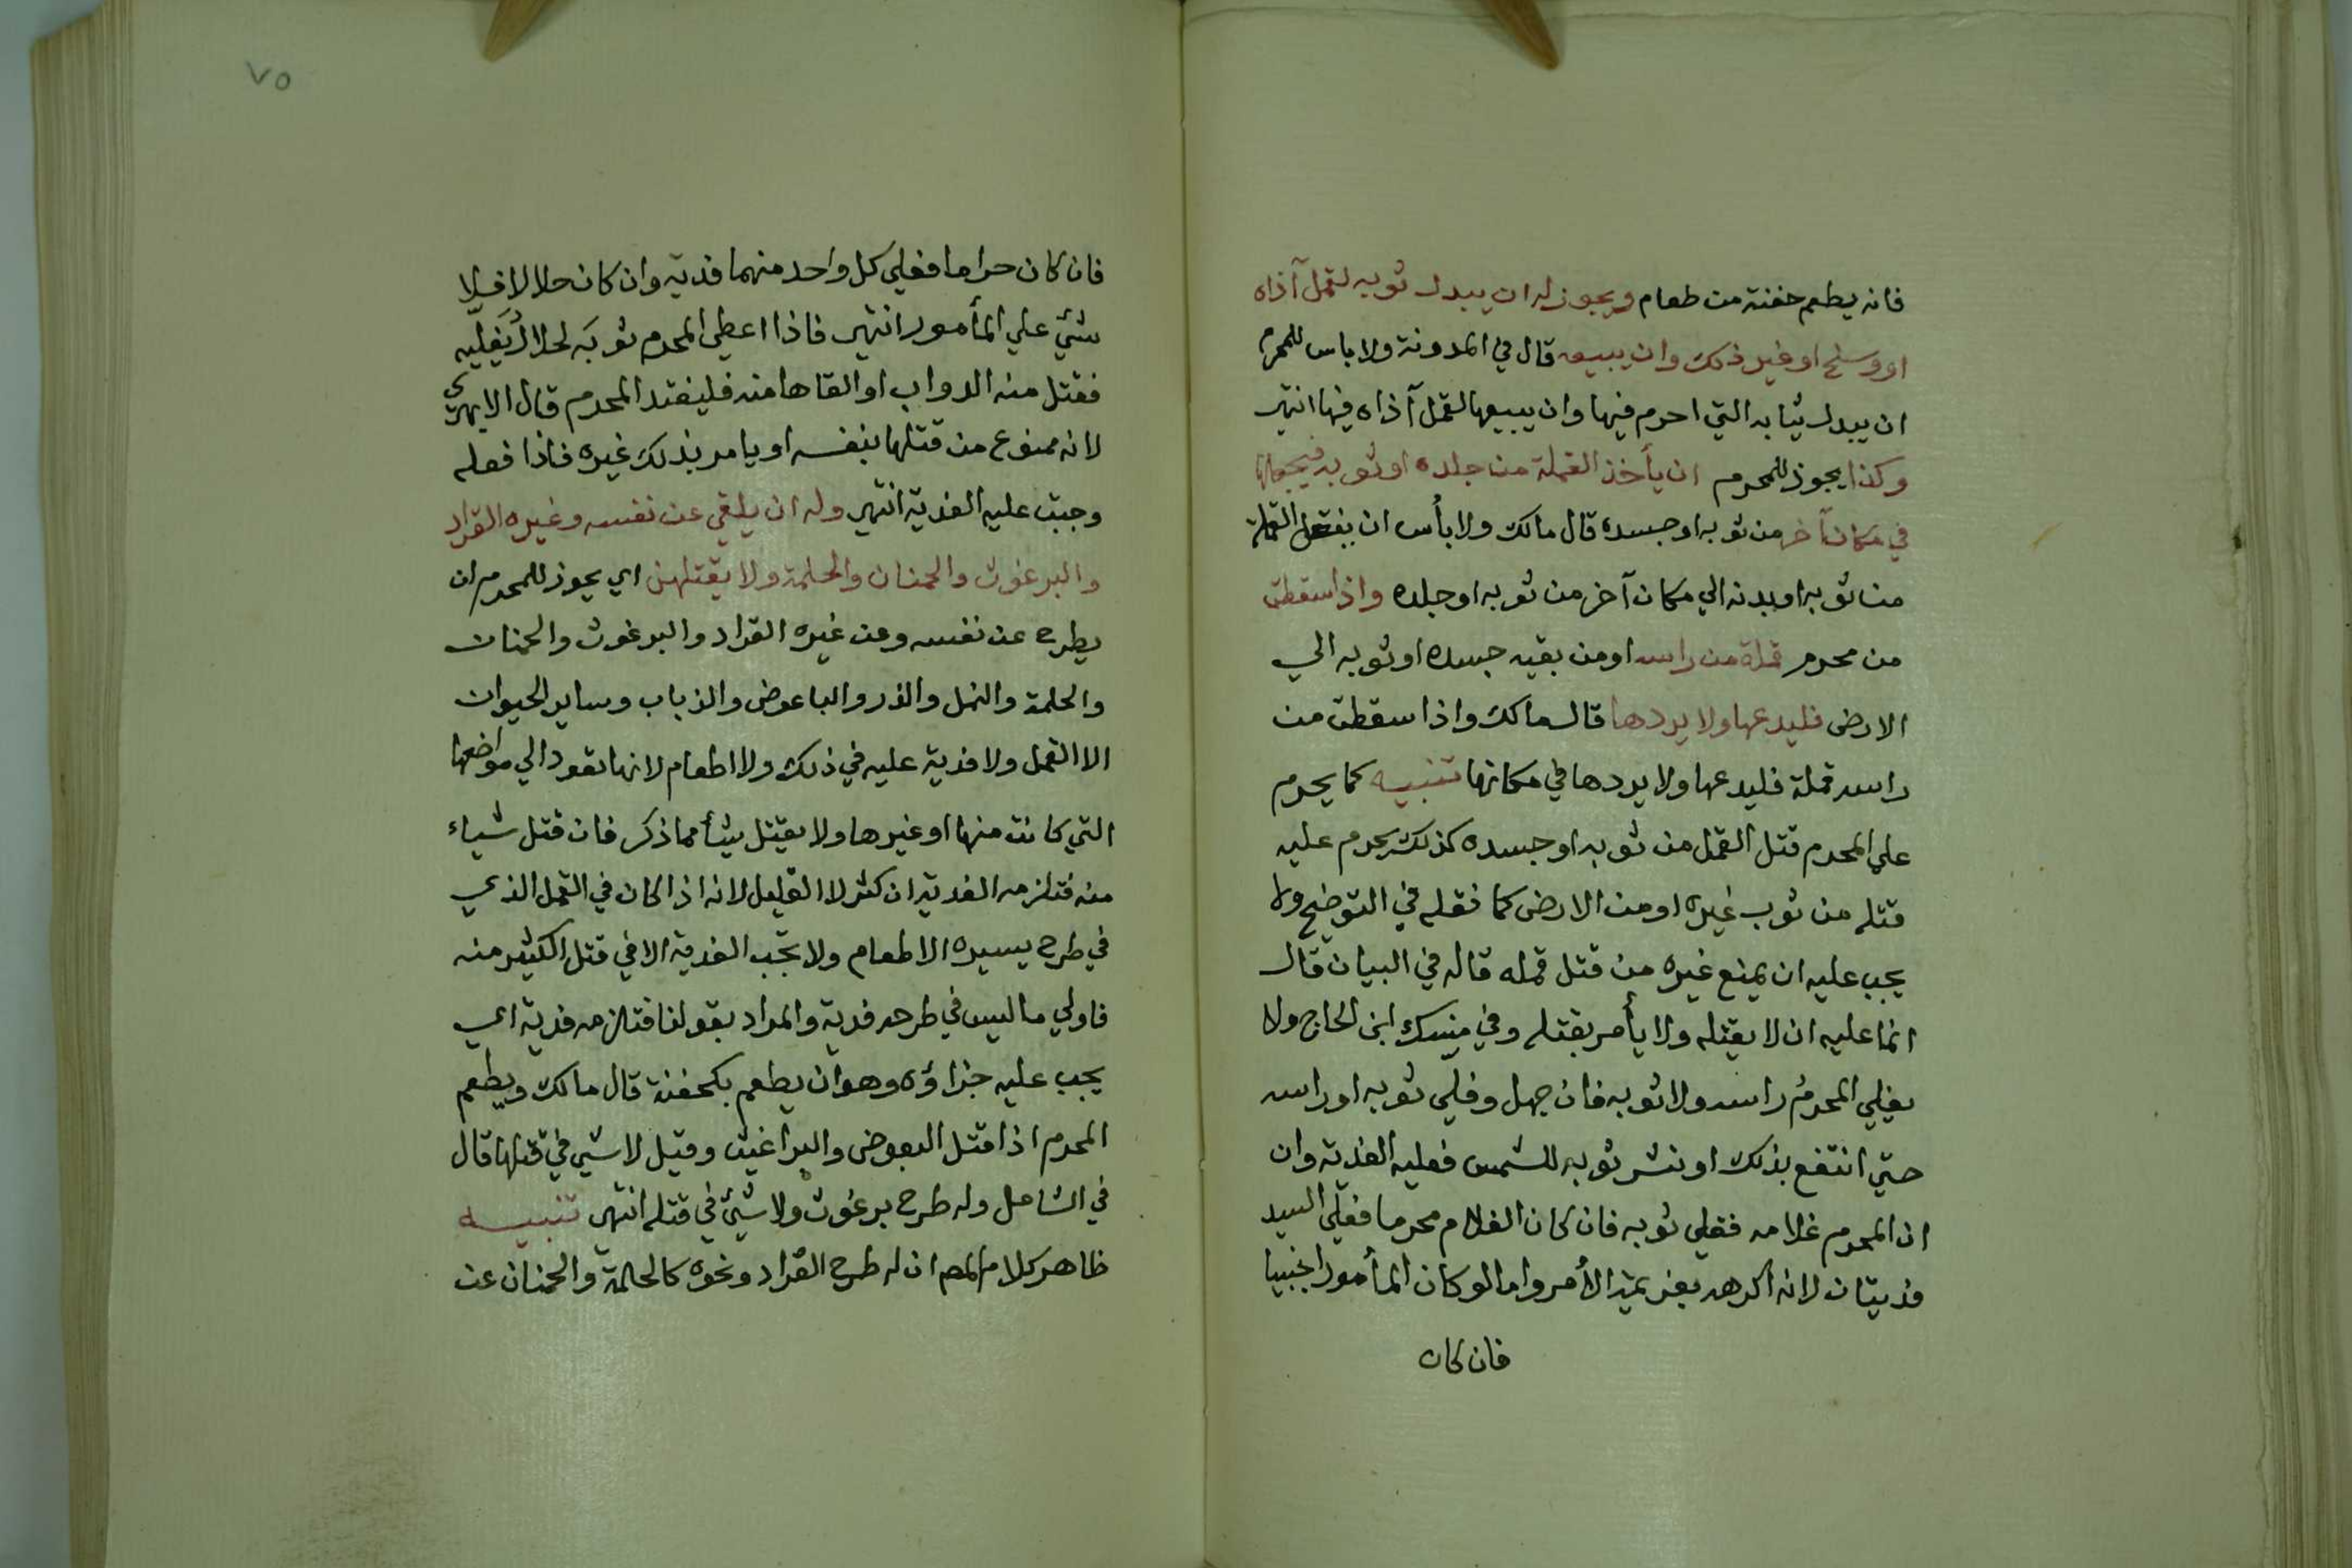 فانه يطعم حفنة من طعام ويجوز له ان يبدل ثوبه لقمل آذاه
او وسخ او غير ذلك وان يبيعه قال في المدونة ولا باس للمحرم
ان يبدل ثيابه التي احرم فيها وان يبيعها لقمل آذاه فيها انتهى
وكذا يجوز للمحرم ان يأخذ القملة من جلده او ثوبه فيجعلها
في مكان آخر من ثوبه او جسده قال مالك ولا بأس ان ينقل القملة
من ثوبه او بدنه الي مكان آخر من ثوبه او جلده واذا سقطت
من محرم قملة من راسه او من بقيه جسده او ثوبه الي
الارض فليدعها ولا يردها قال مالك واذا سقطت من
راسه قملة فليدعها ولا يردها في مكانها تنبيه كما يحرم
علي المحرم قتل القمل من ثوبه او جسده كذلك يحرم عليه
قتله من ثوب غيره او من الارض كما نقله في التوضيح ولا
يجب عليه ان يمنع غيره من قتل قمله قاله في البيان قال
انما عليه ان لا يقتله ولا يأمر بقتله وفي منسك ابن الحاج ولا
يفلي المحرم راسه ولا ثوبه فان جهل وفلي ثوبه او راسه
حتي انتفع بذلك او نشر ثوبه للشمس فعليه الفدية وان
ان المحرم غلامه ففلي ثوبه فان كان الغلام محرما فعلي السيد
فديتان لانه اكرهه بعزيمة الأمر واما لو كان المأمور اجنبيا
فان كان
٧٥
فان كان حراما فعلي كل واحد منهما فدية وان كان حلالا فلا
شئ علي المأمور انتهى فاذا اعطي المحرم ثوبَه لحلال يَفليه
فقتل منه الدواب او القاها منه فليفتد المحرم قال الابهري
لانه ممنوع من قتلها بنفسه او يامر بذلك غيره فاذا فعله
وجبت عليه الفدية انتهى وله ان يلقي عن نفسه وغيره القراد
والبرغوث والحمنان والحلمة ولا يقتلهن اي يجوز للمحرم ان
يطرح عن نفسه وعن غيره القراد والبرغوث والحمنان
والحلمة والنمل والذر والباعوض والذباب وساير الحيوان
الا القمل ولا فدية عليه في ذلك ولا اطعام لانها تعود الي مواضعها
التي كانت منها او غيرها ولا يقتل شيأ مما ذكر فان قتل شياء
منه فتلزمه الفدية ان كثر لا القليل لانه اذا كان في القمل الذي
في طرح يسيره الاطعام ولا تجب الفدية الا في قتل الكثير منه
فاولي ما ليس في طرحه فدية والمراد بقولنا فتلزمه فدية اي
يجب عليه جزاؤه وهو ان يطعم بكحفنة قال مالك ويطعم
المحرم اذا قتل البعوض والبراغيث وقيل لا شي في قتلها قال
في الشامل وله طرح برغوث ولا شئ في قتله انتهى تنبيه
ظاهر كلام المصـ ان له طرح القراد ونحوه كالحلمة والحمنان عن